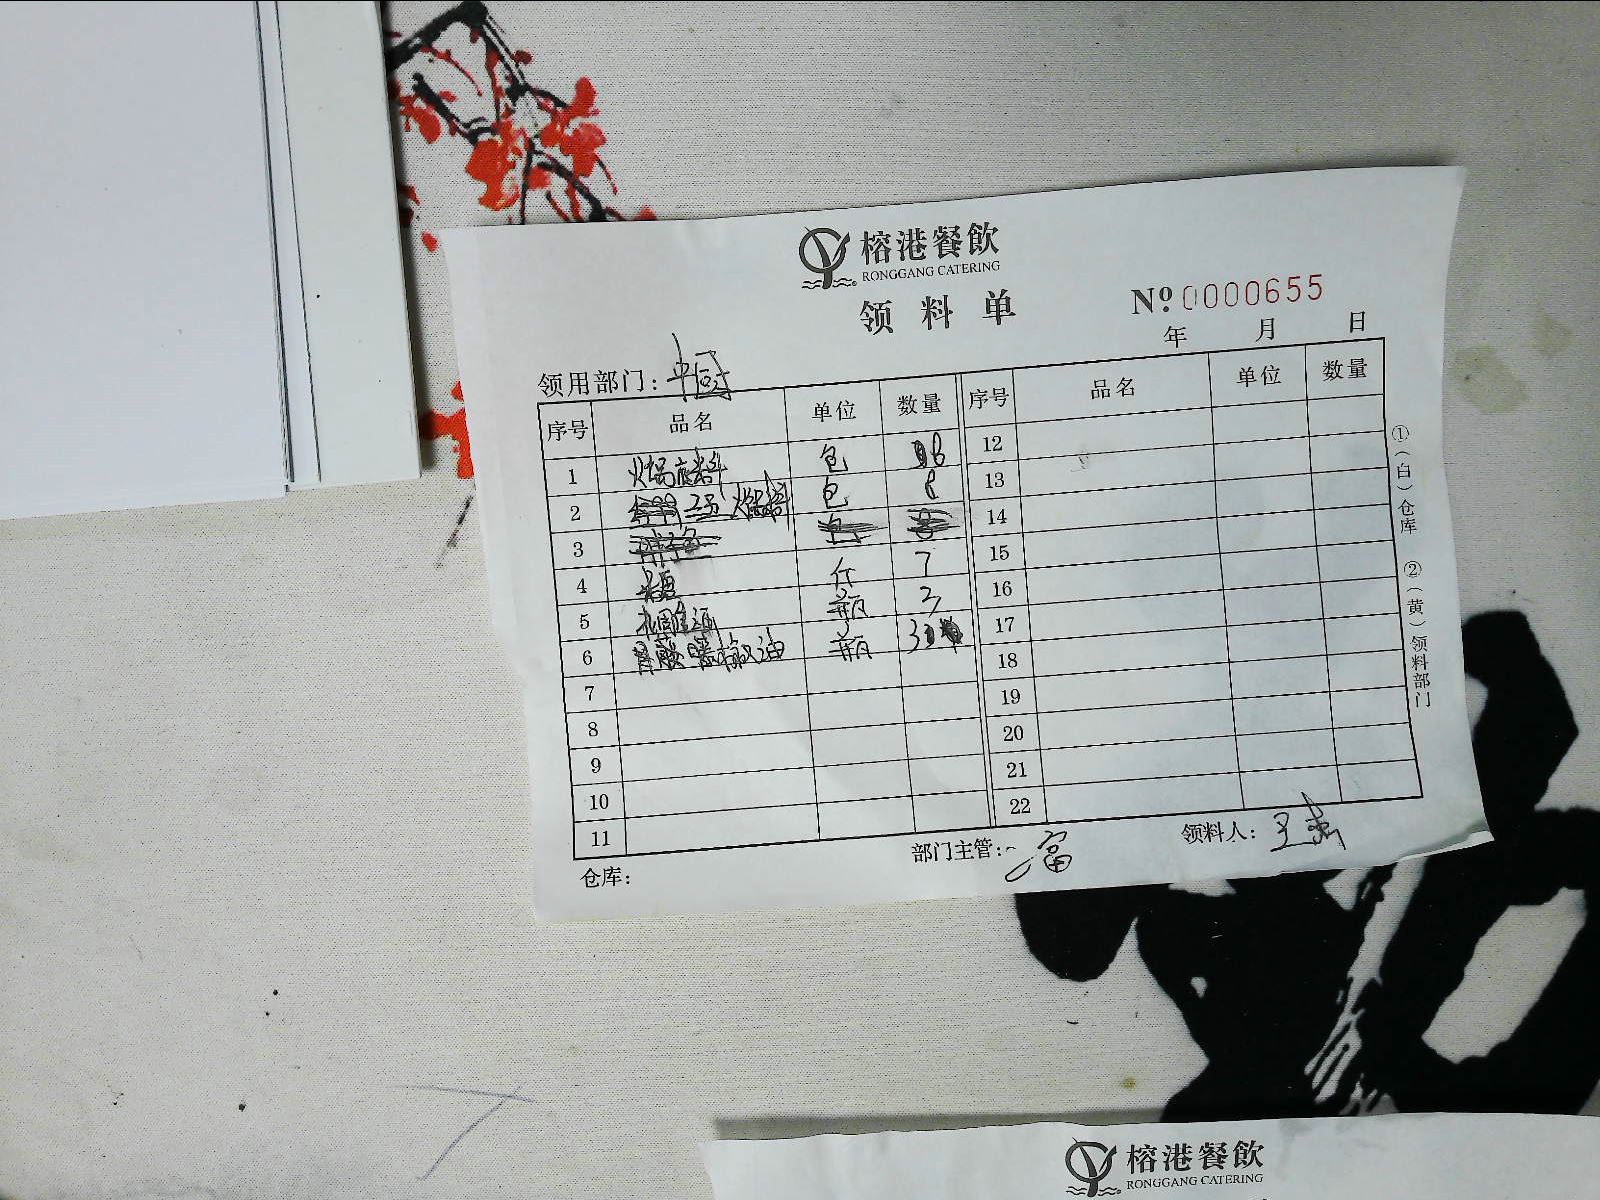 榕港餐飲
RONGGANG CATERING
领料单
№ 0000655
年 月 日
领用部门：中厨
序号 品名 单位 数量 序号 品名 单位 数量
1 火锅底料 包 8 12
2 包 8 13
3 14
4 斤 7 15
5 瓶 3 16
6 瓶 17
7 18
8 19
9 20
10 21
11 22
①（白）仓库 ②（黄）领料部门
仓库： 部门主管： 富 领料人：王
榕港餐飲
RONGGANG CATERING